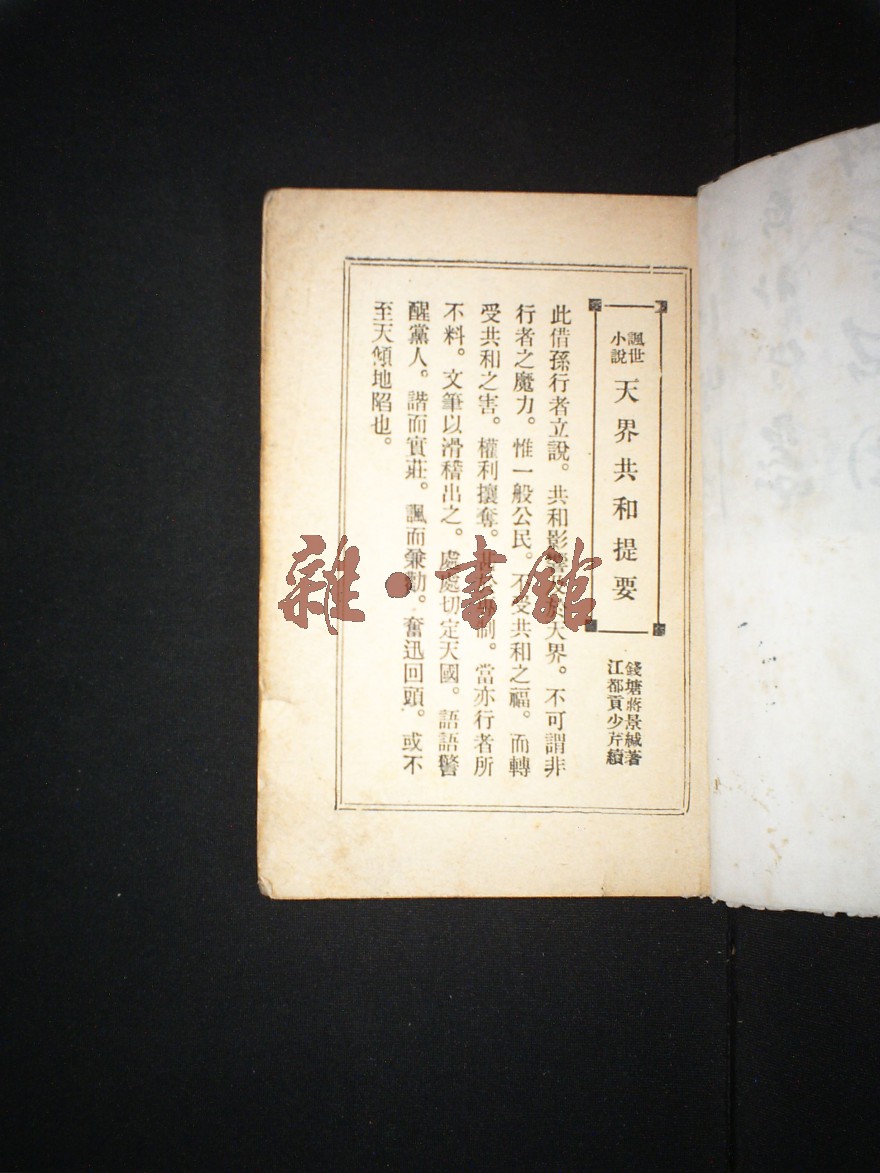 諷世
小說
天界共和提要
錢塘蔣景緘著
江都貢少芹續
此借孫行者立說。共和影響及於天界。不可謂非
行者之魔力。惟一般公民。不受共和之福。而轉
受共和之害。權利攘奪。甚於專制。當亦行者所
不料。文筆以滑稽出之。處處切定天國。語語警
醒黨人。諧而實莊。諷而兼勸。奮迅回頭。或不
至天傾地陷也。
雜·書館